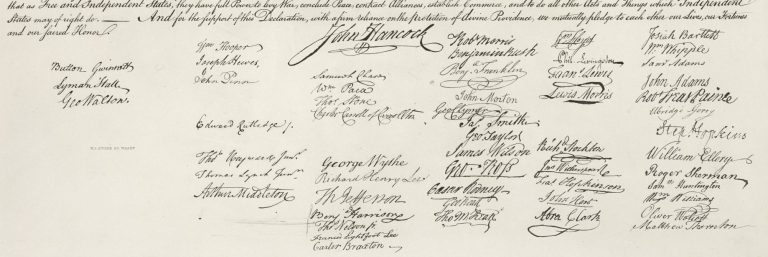 that as Free and Independent States, they have full Power to levy War, conclude Peace, contract Alliances, establish Commerce, and to do all other Acts and Things which Independent
States may of right do. And for the support of this Declaration, with a firm reliance on the Protection of divine Providence, we mutually pledge to each other our Lives, our Fortunes
and our sacred Honor.
Button Gwinnett
Lyman Hall
Geo Walton.
Wm Hooper
Joseph Hewes,
John Penn
Edward Rutledge /.
Thos Heyward Junr.
Thomas Lynch Junr.
Arthur Middleton
John Hancock
Samuel Chase
Wm Paca
Thos Stone
Charles Carroll of Carrollton
George Wythe
Richard Henry Lee
Th Jefferson
Benj Harrison
Thos Nelson jr.
Francis Lightfoot Lee
Carter Braxton
Robt Morris
Benjamin Rush
Benj. Franklin
John Morton
Geo Clymer
Jas. Smith
Geo. Taylor
James Wilson
Geo. Ross
Caesar Rodney
Geo Read
Tho M:Kean
Wm Floyd
Phil. Livingston
Frans. Lewis
Lewis Morris
Richd. Stockton
Jno Witherspoon
Fras. Hopkinson
John Hart
Abra Clark
Josiah Bartlett
Wm Whipple
Saml Adams
John Adams
Robt Treat Paine
Elbridge Gerry
Step Hopkins
William Ellery
Roger Sherman
Saml Huntington
Wm Williams
Oliver Wolcott
Matthew Thornton